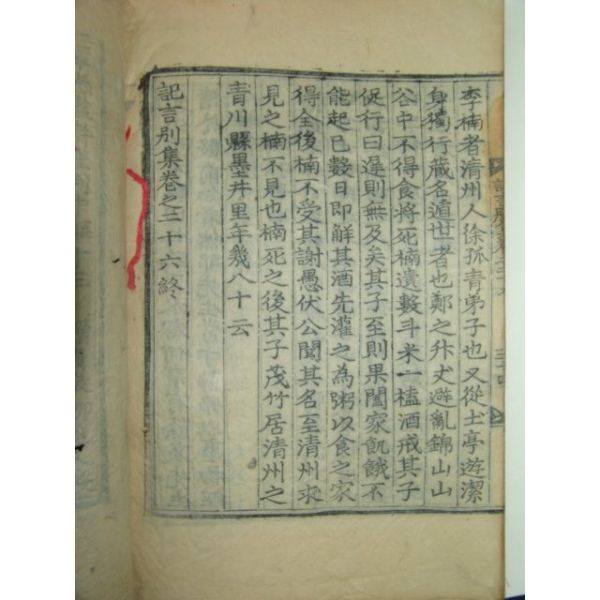 李楠者淸州人徐孤靑弟子也又從土亭遊潔
身獨行藏名遁世者也鄭之升丈避亂錦山山
谷中不得食將死楠遺數斗米一榼酒戒其子
促行曰遲則無及矣其子至則果闔家飢餓不
能起已數日卽解其酒先灌之為粥以食之家
得全後楠不受其謝愚伏公聞其名至淸州求
見之楠不見也楠死之後其子茂竹居淸州之
靑川縣墨井里年幾八十云
記言別集卷之二十六終